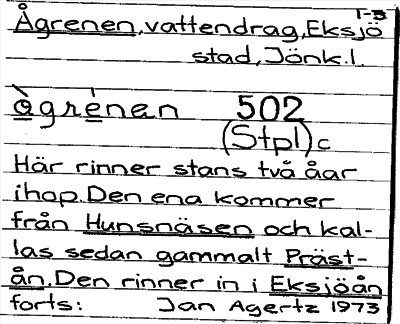 1-3
Ågrenen, vattendrag, Eksjö
stad, Jönk.l.
àgrénan 502
(Stpl)c
Här rinner stans två åar
ihop. Den ena kommer
från Hunsnäsen och kal-
las sedan gammalt Präst-
ån. Den rinner in i Eksjöån
forts: Jan Agertz 1973